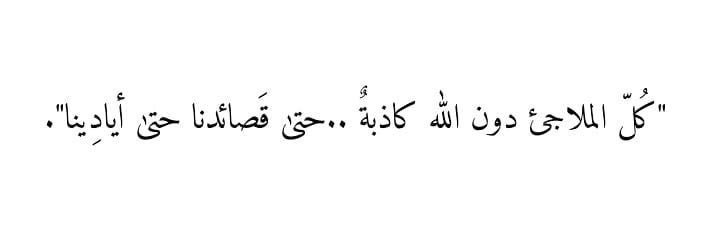 "كُلّ الملاجئ دون الله كاذبةٌ ..حتىٰ قَصائدنا حتىٰ أيادِينا".